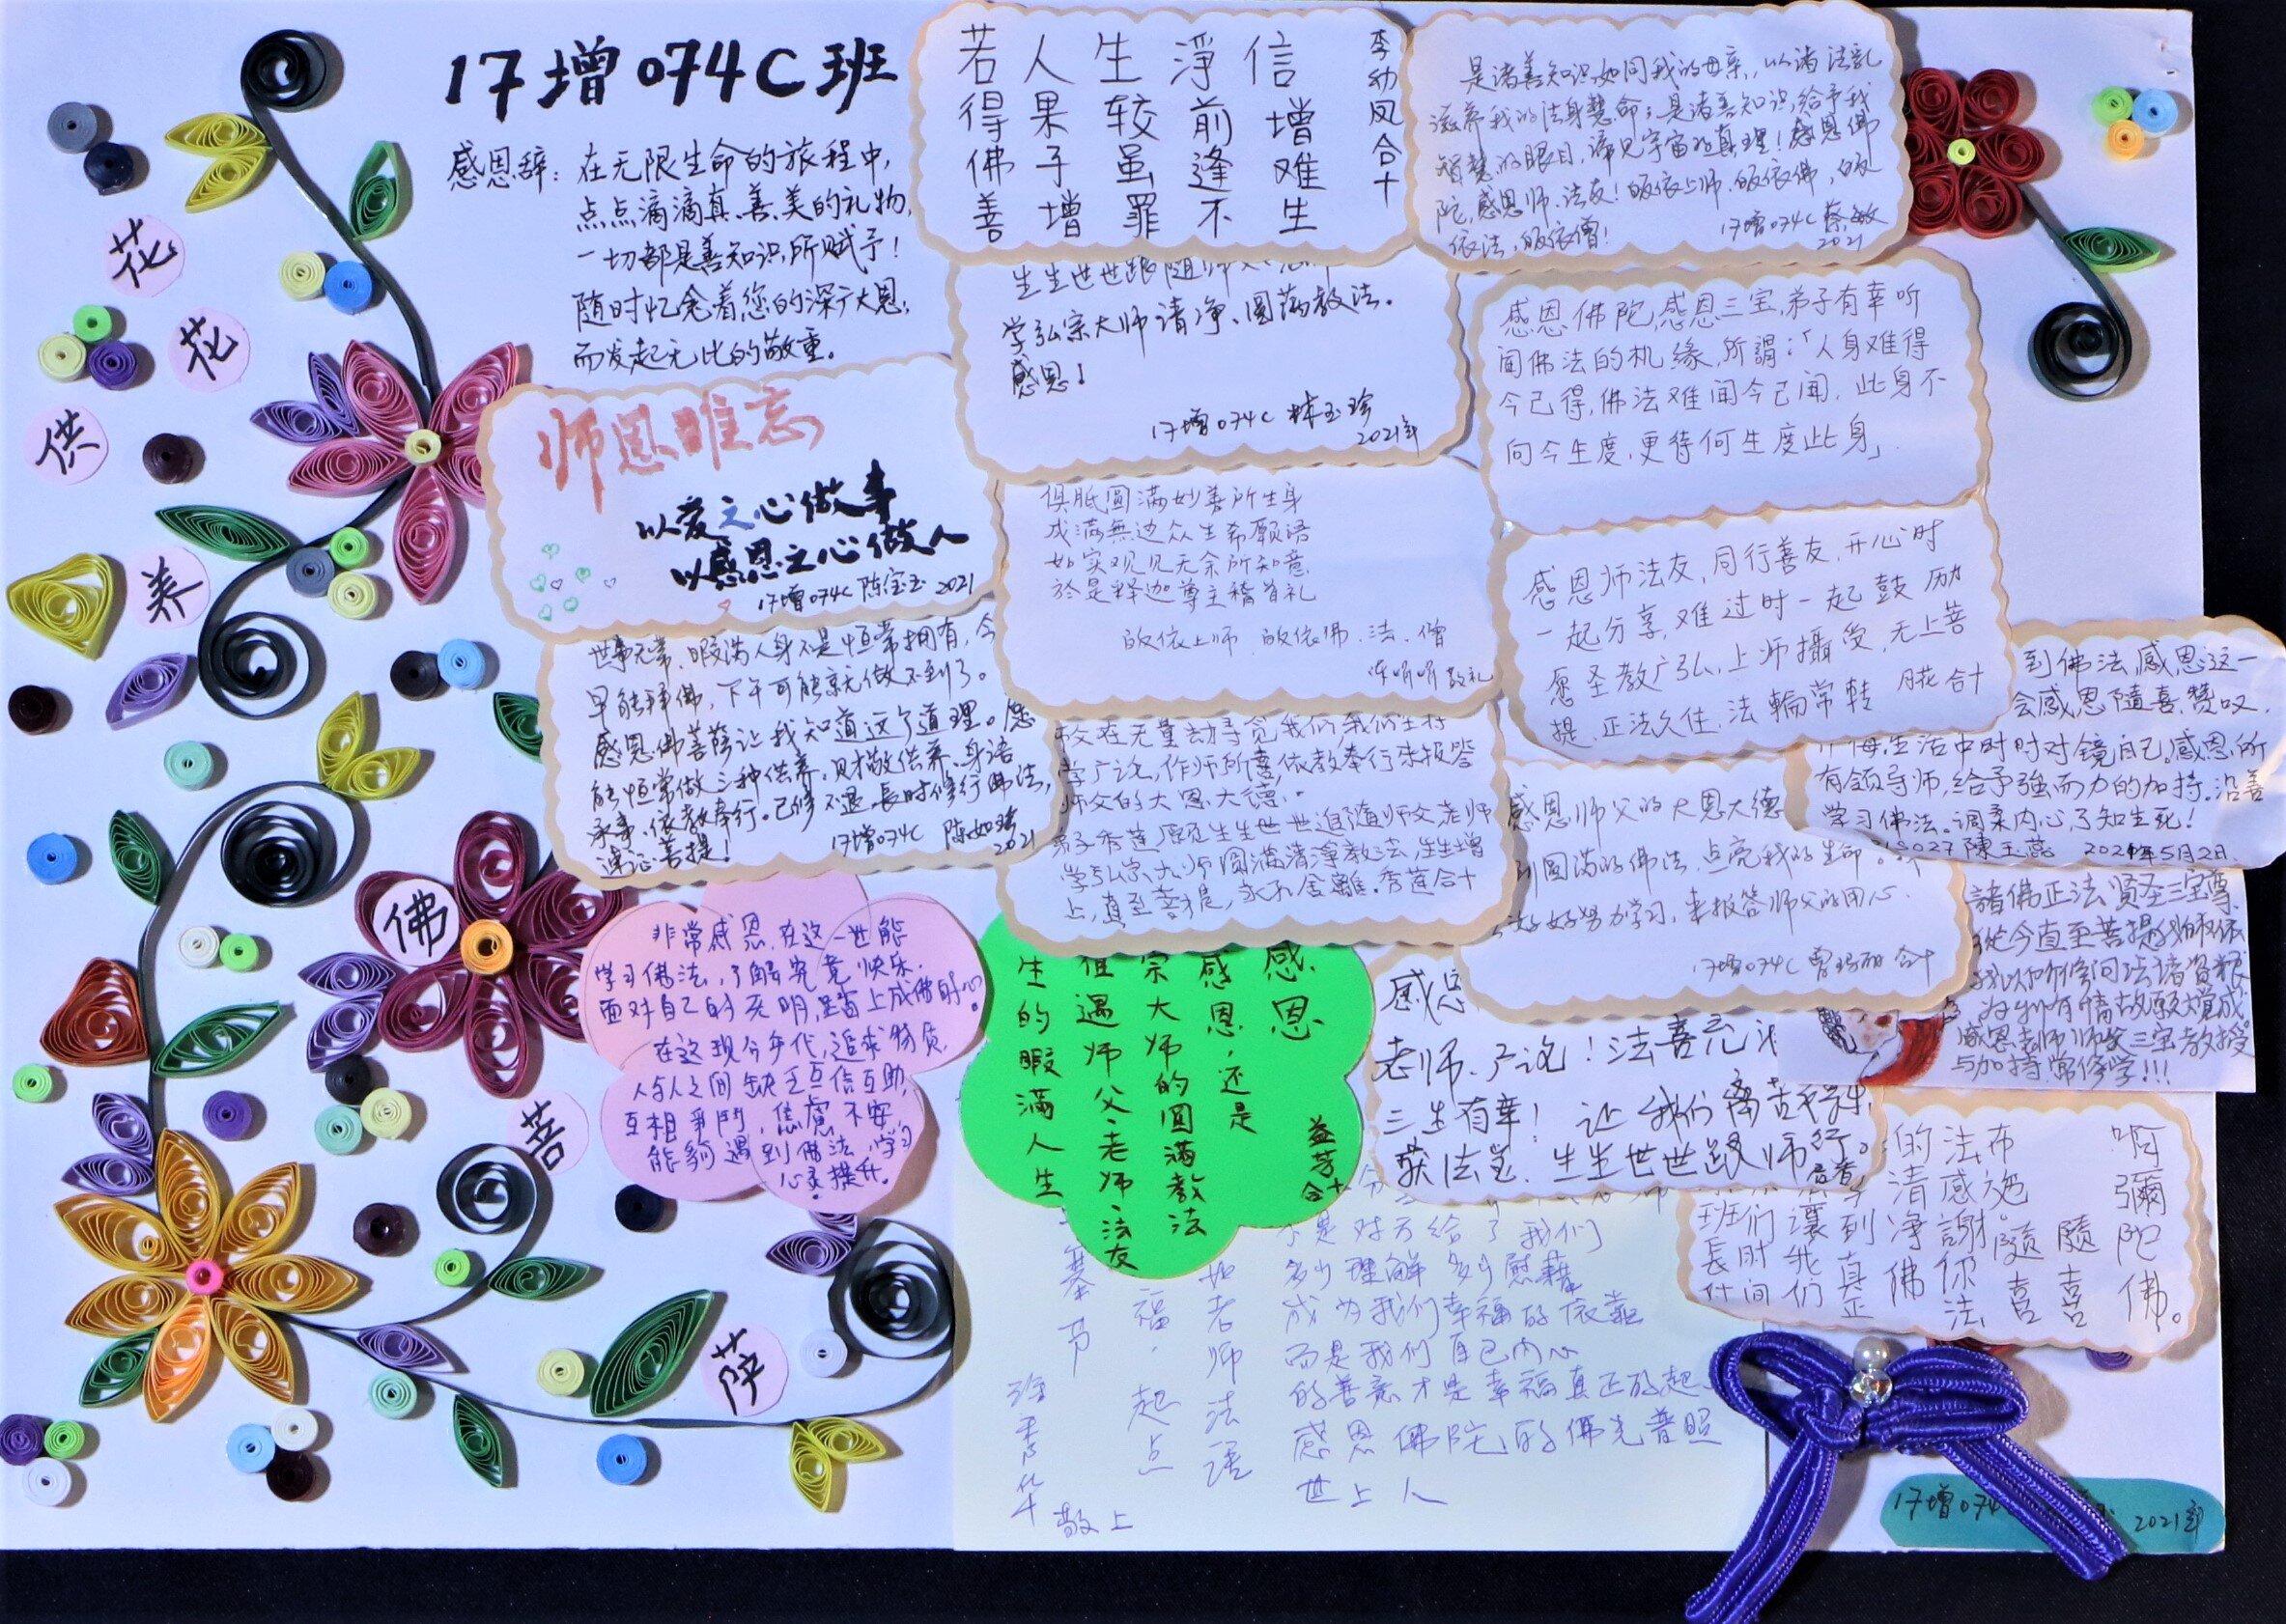 17增074C班
感恩辞：在无限生命的旅程中，
点点滴滴真、善、美的礼物，
一切都是善知识所赋予！
随时忆念着您的深广大恩；
而发起无比的敬重。
花
花
供
养
佛
菩
萨
师恩难忘
以爱之心做事
以感恩之心做人
17增074C 陈宝玉 2021
世事无常、暇满人身不是恒常拥有，今
早能拜佛，下午可能就做不到了。
感恩佛菩萨让我知道这个道理。愿
能恒常做三种供养，财敬供养、身语
承事、依教奉行。已修不退，长时修行佛法，
速证菩提！
17增074C 陈如琦
2021
非常感恩，在这一世能
学习佛法，了解究竟快乐，
面对自己的无明，踏上成佛
在这现今年代，追求物质，
人与人之间缺乏互信互助，
互相争鬥，焦慮不安，
能夠遇到佛法，学习
心灵提升。
若人生淨信
得果较前增
佛子虽逢难
善增罪不生
李幼凤合十
生生世世跟随师父
学弘宗大师清净、圆满教法。
感恩！
17增074C 林玉珍
2021年
俱胝圆满妙善所生身
成满無边众生希愿语
如实观见无余所知意
於是释迦尊主稽首礼
皈依上师、皈依佛、法、僧
敬礼
父在无量劫寻觅我们，我们生持
学广论，作师所喜，依教奉行来报答
师父的大恩大德..
弟子秀莲，愿生生世世追随师父老师
学弘宗大师圆满清淨教法，生生增
上，直至菩提，永不舍離。秀莲合十
感恩
感恩，还是
宗大师的圆满教法
值遇师父、老师、法友
生的暇满人生
益芳合十
是诸善知识，如同我的母亲，以诸法乳
滋养我的法身慧命；是诸善知识，给予我
智慧的眼目，谛见宇宙的真理！感恩佛
陀，感恩师、法友！皈依上师、皈依佛，皈
依法，皈依僧！
17增074C 蔡敏
2021
感恩佛陀，感恩三宝，弟子有幸听
闻佛法的机缘，所謂：「人身难得
今已得，佛法难闻今已闻，此身不
向今生度，更待何生度此身」.
感恩师法友，同行善友，开心时
一起分享，难过时一起鼓历
愿圣教广弘，上师攝受，无上菩
提，正法久住，法輪常转 月花合十
到佛法，感恩这一
会感恩隨喜、赞叹，
每生活中时时对镜自己。感恩所
有领导师，给予強而力的加持。沿善
学习佛法。调柔内心，了知生死！
陳玉蕊 2021年5月2日
感恩师父的大恩大德
到圆满的佛法，点亮我的生命。
好好努力学习，来报答师父的用心.
17增074C 曾 合十
諸佛正法贤圣三宝尊
從今直至菩提我皈依
我以所修向法诸資粮
为利有情故願大覚成
感恩老师师父三宝教授
与加持，常修学！！！
感恩
老师、广论！法善充
三生有幸！让我们离苦
获法宝、生生世世跟师行。
是对方给了我们
多少理解 多少慰藉
成为我们幸福的依靠
而是我们自己内心
的善意才是幸福真正的起
感恩佛陀的佛光普照
世上人
老师法语
福，起点
敬上
啊彌陀佛。
隨喜
布施。隨喜
法感謝你法
的清净佛
讓到真正
们我们
班長时间
17增074
2021年